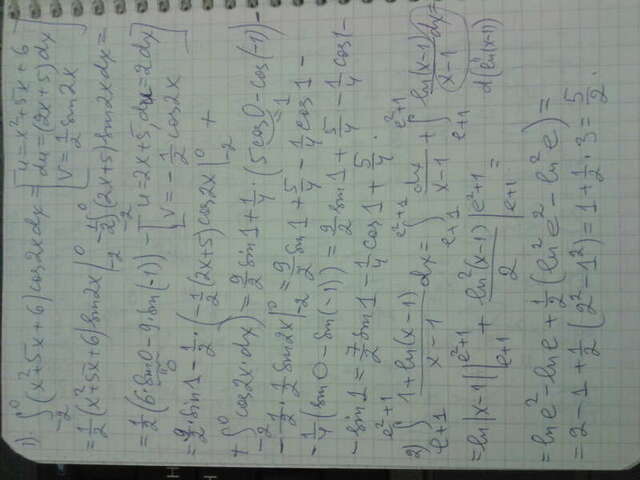 1) ∫_{-2}^{0} (x²+5x+6) cos2x dx = [u = x²+5x+6
du = (2x+5)dx
v = 1/2 sin2x] =
= 1/2 (x²+5x+6) sin2x |_{-2}^{0} - 1/2 ∫_{-2}^{0} (2x+5) sin2x dx =
= 1/2 (6 sin0 - 9 sin(-1)) - [u = 2x+5, du = 2dx
v = -1/2 cos2x]
= 9/2 · sin1 - 1/2 · (-1/2 (2x+5) cos2x |_{-2}^{0} +
+ ∫_{-2}^{0} cos2x · dx) = 9/2 sin1 + 1/4 · (5 cos0 - cos(-1)) -
- 1/2 · 1/2 sin2x |_{-2}^{0} = 9/2 sin1 + 5/4 - 1/4 cos1 -
- 1/4 (sin0 - sin(-1)) = 9/2 sin1 + 5/4 - 1/4 cos1 -
- sin1 = 7/2 sin1 - 1/4 cos1 + 5/4.
2) ∫_{e+1}^{e²+1} (1+ln(x-1))/(x-1) dx = ∫_{e+1}^{e²+1} dx/(x-1) + ∫_{e+1}^{e²+1} ln(x-1)/(x-1) dx =
d(ln(x-1))
= ln|x-1| |_{e+1}^{e²+1} + ln²(x-1)/2 |_{e+1}^{e²+1} =
= ln e² - ln e + 1/2 (ln² e² - ln² e) =
= 2 - 1 + 1/2 (2² - 1²) = 1 + 1/2 · 3 = 5/2.